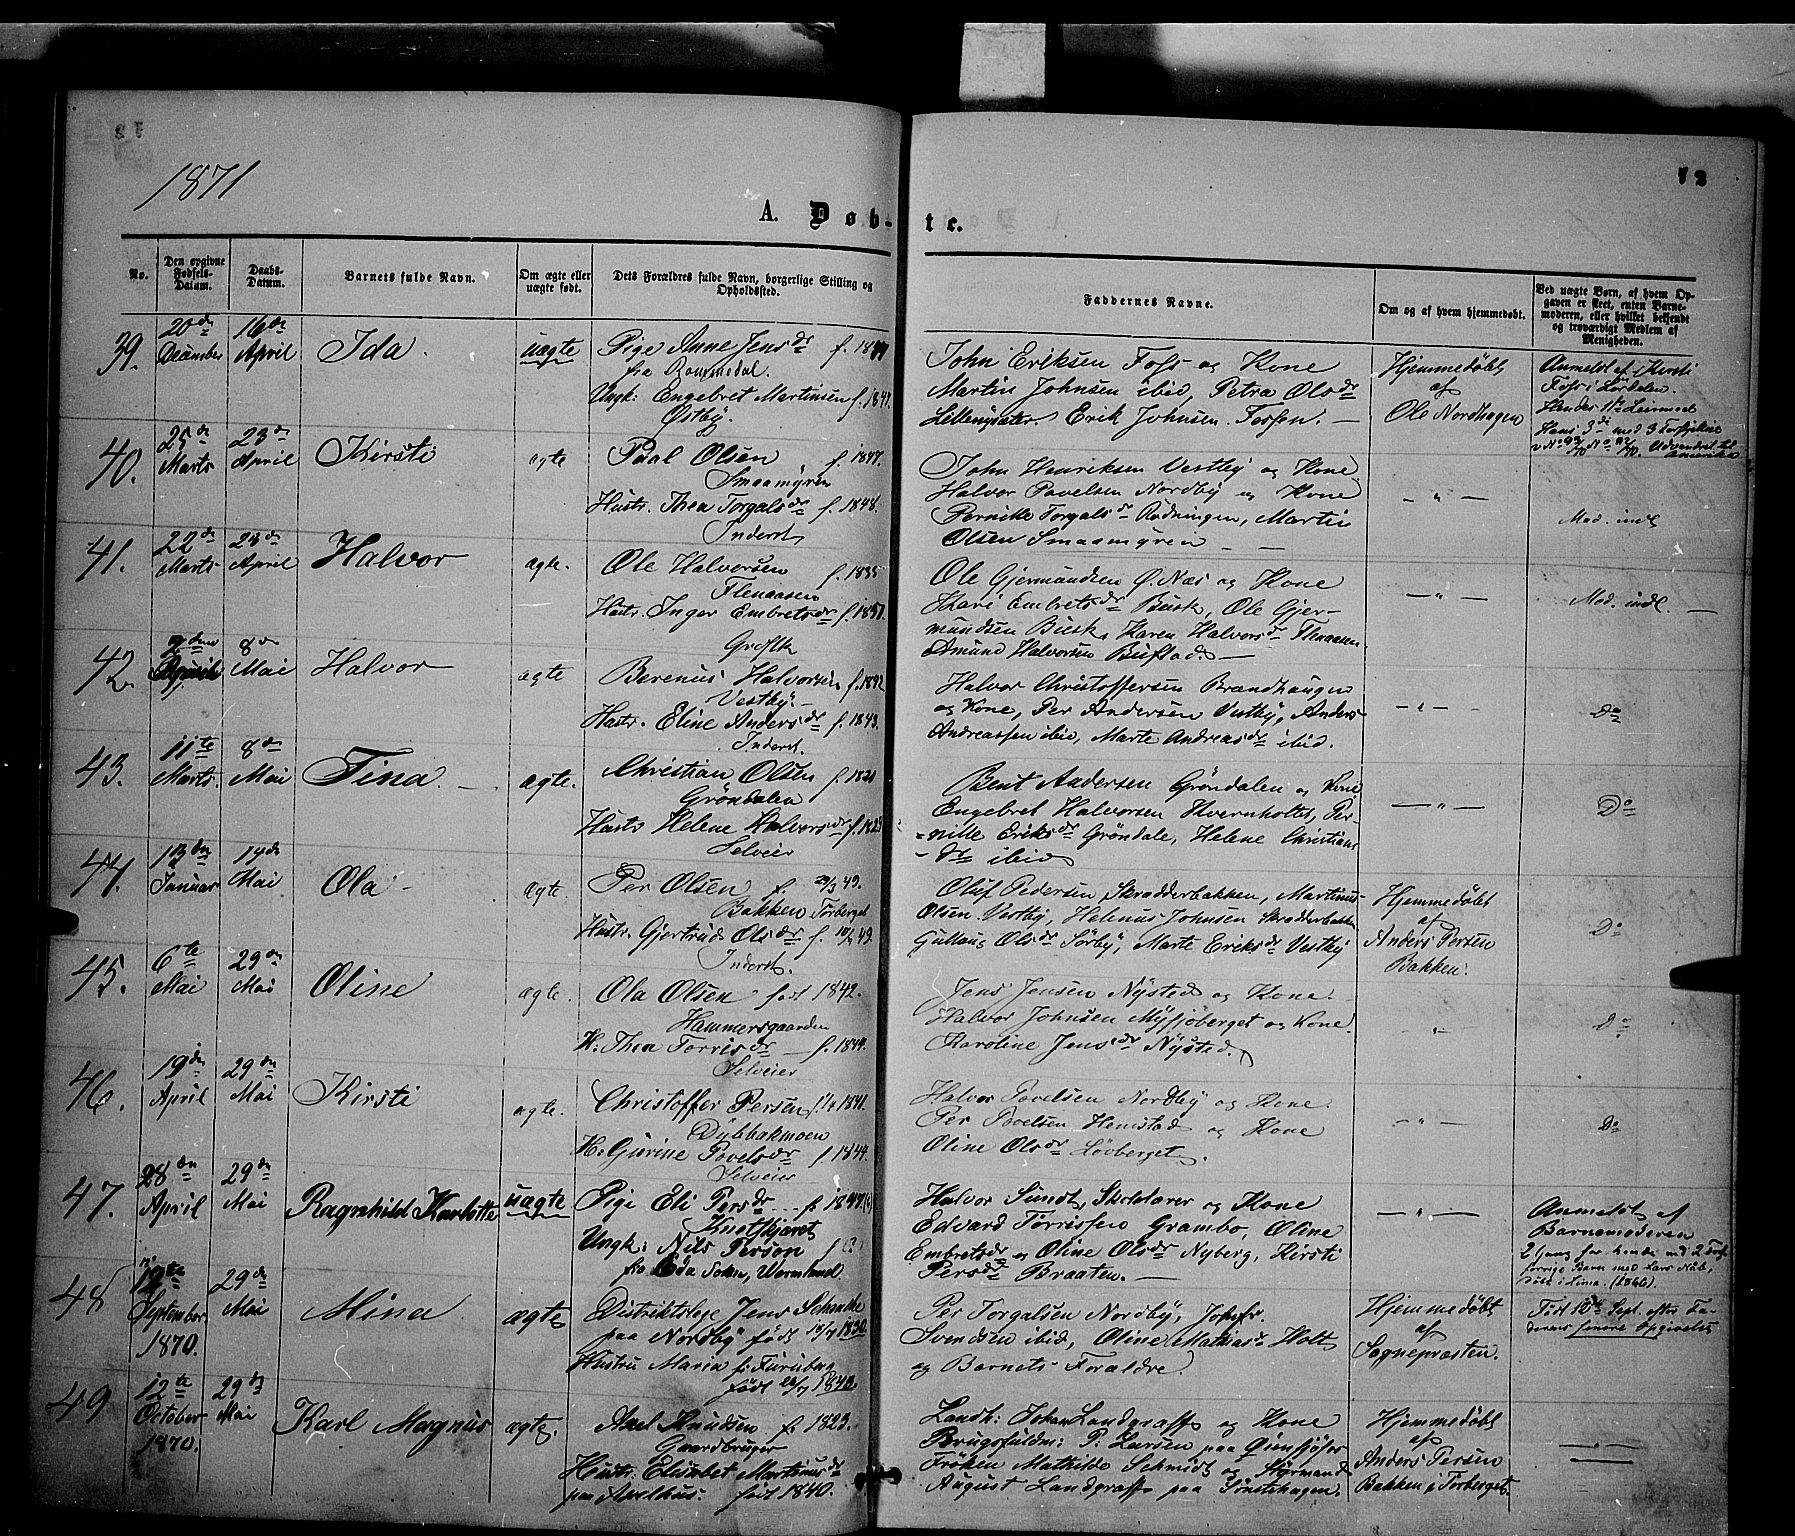 1871
12
A. Døb-
te.
No.
Den opgivne Fødsels-Datum.
Daabs-Datum.
Barnets fulde Navn.
Om ægte eller uægte født.
Dets Forældres fulde Navn, borgerlige Stilling og Opholdssted.
Faddernes Navne.
Om og af hvem hjemmedøbt.
Ved uægte Børn, af hvem Opgaven er skeet, enten Barnemoderen, eller hvilket betjendt og troværdigt Medlem af Menigheden.
39. 20de December 16de April Ida. uægte
Pige Anne Jensdr
fra Rommedal.
Ungk: Engebret Martinsen f. 1847.
Østby.
John Eriksen Foss og Kone
Martin Johnsen ibid, Petra Olsdr
Erik Johnsen Fossen. —
Hjemmedøbt
af
Ole Nordhagen
Anmeldt af Kirsti
Foss i Lørdalen.
40. 25de Marts 23de April Kirsti ægte
Paal Olsen f. 1847.
Smaamyren
Hustr. Thea Torgalsdr f. 1848.
Inderst
John Henriksen Vestby og Kone
Halvor Povelsen Nordby og Kone
Pernille Torgalsdr Rødningen, Martin
Olsen Smaamyren —
— " —
Mod. indl
41. 22de Marts 23de April Halvor ægte.
Ole Halvorsen f. 1835
Flenaasen
Hustr. Inger Embretsdr
Ole Gjermundsen Ø. Næs og Kone
Kari Embretsdr Busk, Ole Gjer-
mundsen Busk, Karen Halvorsdr Flenaasen
Amund Halvorsen Bustad. —
— " —
Mod. indl. —
42. 8de Mai Halvor ægte
Berenus Halvorsen f. 1842
Vestby. —
Hustr. Eline Andersdr f. 1843.
Inderst.
Halvor Christoffersen Brændhaugen
og Kone, Per Andersen Vestby, Anders
Andreassen ibid, Marte Andreasdr ibid.
— " —
Do
43. 11te Marts 8de Mai Tina. — ægte.
Christian Olsen
Grøndalen
Hustr Helene Halvorsdr
Selveier
Bent Andersen Grøndalen og Kone
Engebret Halvorsen Kvernholtet, Per-
nille Eriksdr Grøndale, Helene Christians
dr ibid
— " —
Do
44. Januar Mai Ola — ægte.
Per Olsen f. 29/3 49.
Bakken Torberget
Hustr. Gjertrud Olsdr
Inderst.
Oluf Pedersen Skradderbakken, Martinus
Olsen Vestby, Helenus Johnsen Skradderbakken
Olsdr Sørby, Marte Eriksdr Vestby
Hjemmedøbt
af
Anders Persen
Bakken.
Do
45. 6te Mai 29de Mai Oline ægte.
Ola Olsen født 1842.
Hammersgaarden
H: Thea Torrisdr — f. 1844.
Selveier
Jens Jensen Nysted og Kone.
Halvor Johnsen Mysjøberget og Kone.
Karoline Jensdr Nysted.
"
Do
46. 19de April 29de Mai Kirsti ægte.
Christoffer Persen
Dybbakmoen
H: Gurine Povelsdr f. 1844.
Selveier
Halvor Povelsen Nordby og Kone.
Per Povelsen Hemstad og Kone
Oline Olsdr Løvberget.
— " —
Do
47. 28de April 29de Mai Ragnhild Karlotte uægte
Pige Eli Persdr
Ungk: Nils Person
fra Eda Sokn, Wermland.
Halvor Sundt, Skolelærer og Kone
Edvard Torrissen Grambo, Oline
Embretsdr og Oline Olsdr Nyberg, Kirsti
Persdr Braaten. —
— " —
Anmeldt af
Barnemoderen
48 September 1870. 29de Mai Mina ægte
Distriktslæge Jens Schancke
paa Nordby
Hustru Maria f. Furuberg
Per Torgalsen Nordby, Johs.
Svendsen ibid, Oline Mathiasdr Holt
og Barnets Forældre.
Hjemmedøbt
af
Sognepræsten.
Født 10de Sept. efter Fa-
derens senere Opgivelse
49 12te October 1870. 29de Mai Karl Magnus ægte.
Axel Knudsen f. 1823.
Gaardbruger
Hustr. Elisabet Martinusdr
paa Axelhus. født 1840.
Landh: Johan Landgraff og Kone
Brugsfuldm: P. Larsen paa
Frøken Mathilde Schmidt og Styrmand
August Landgraff paa
Hjemmedøbt
af
Anders Persen
Bakken i Torberget
— " —